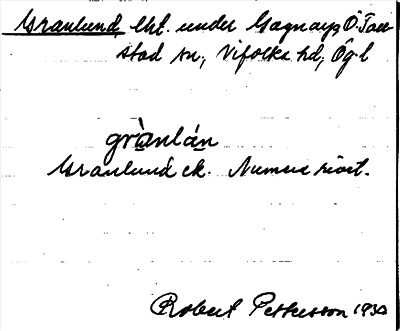 Granlund, lht. under Gagnarp Ö. Tollstad sn, Vifolka hd, Ög. l
grànlán
Granlund ck. Numera rivet.
Robert Pettersson 1930